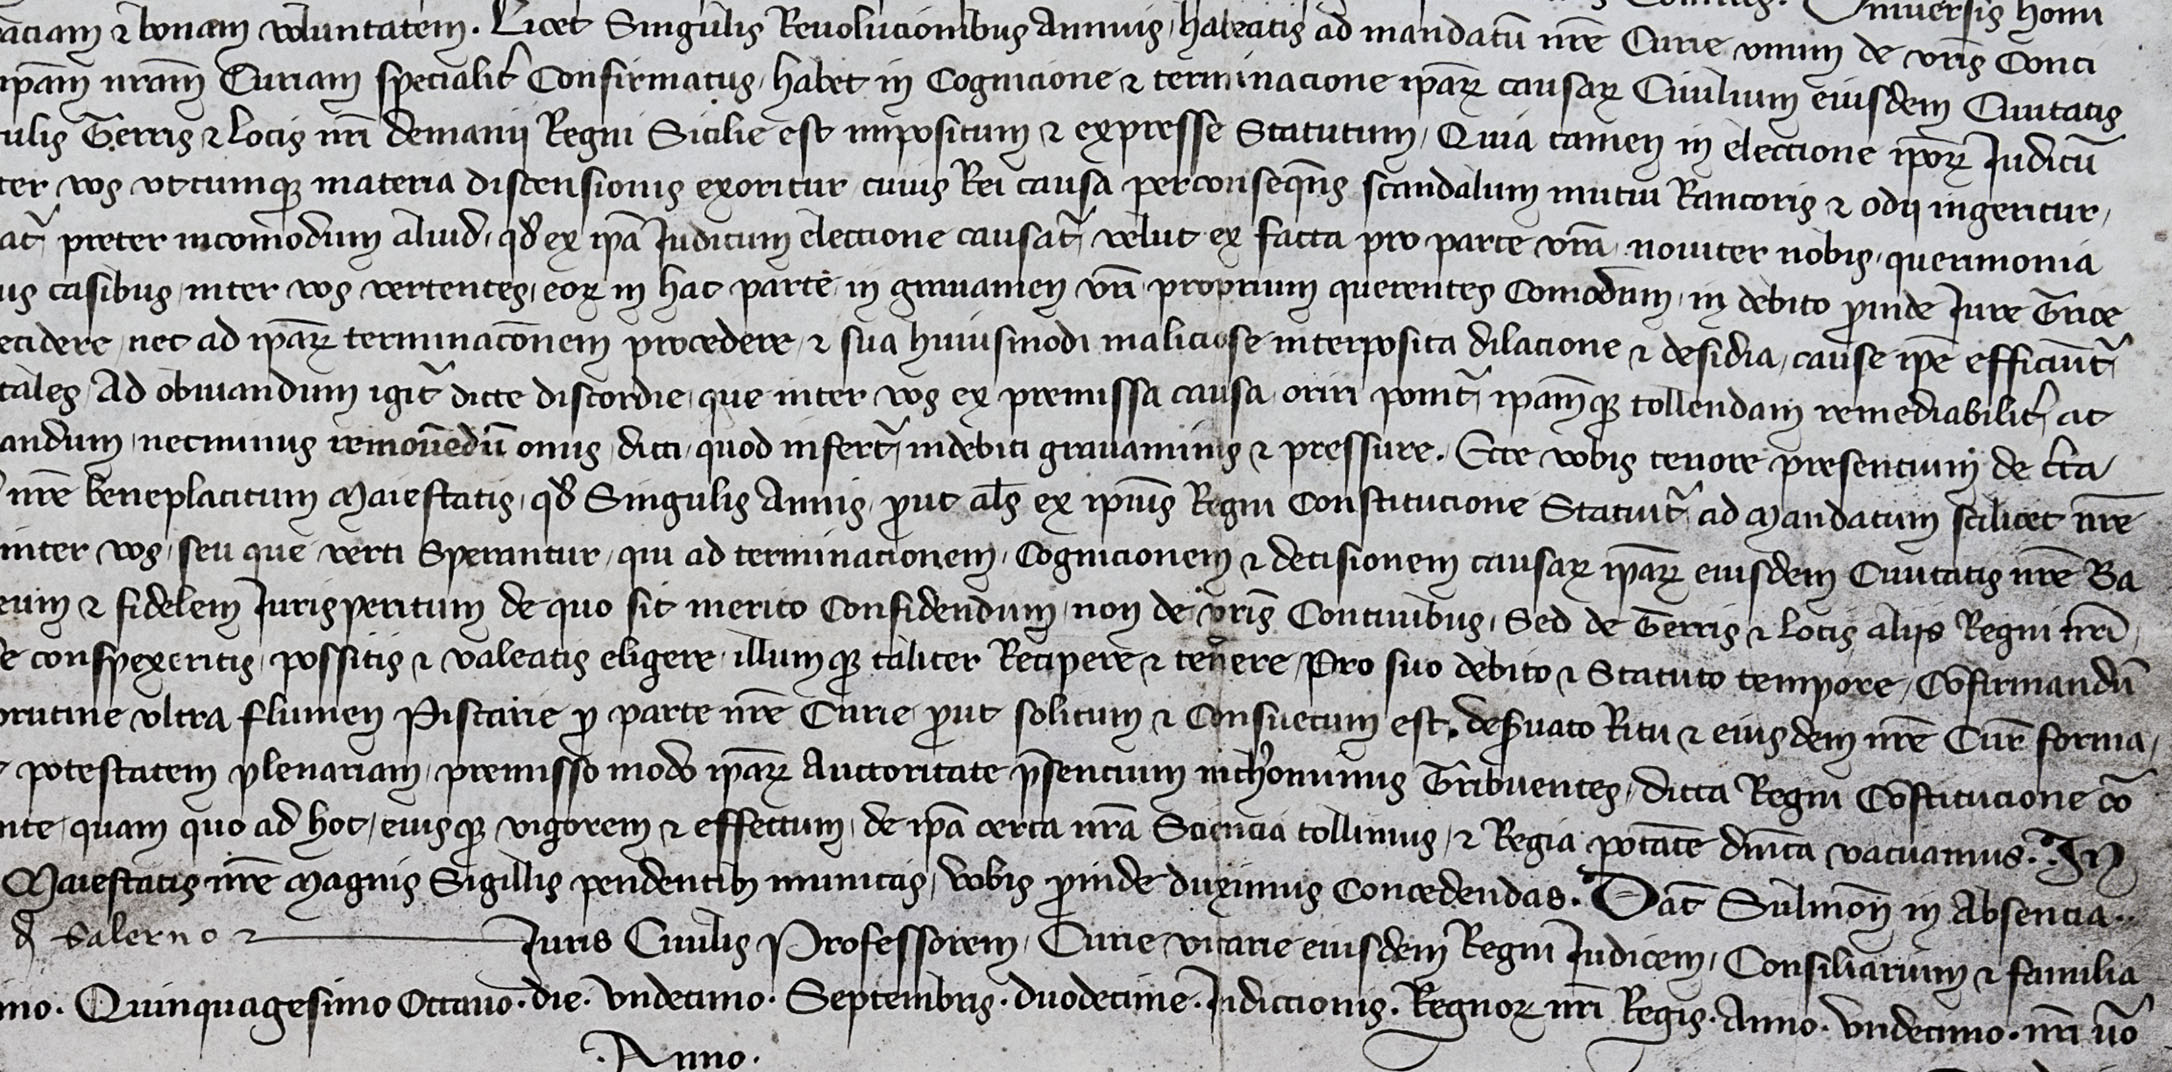 Universis homi
aciam ⁊ bonam voluntatem. Licet Singulis Revolucionibus Annuis, habeatis ad mandatū nr̄e Curie vnum de vr̄is Conci
ipām nrām Curiam specialit᷑ Confirmatus, habet in Cognicione ⁊ terminacione ip̄aꝝ causaꝝ Ciuilium eiusdem Ciuitatis
ulis Terris ⁊ locis nr̄i demanij Regni Sicilie est impositum ⁊ expresse Statutum, Quia tamen in eleccione ip̄oꝝ Iudicū
ter vos vtcumqꝫ materia discensionis exoritur, cuius Rei causa perconseqn̄s scandalum mutui Rancoris ⁊ odij ingeritur,
at᷑ preter incomodum aliud, qđ ex ip̄a Iudicum eleccione causat᷑, velut ex facta pro parte vr̄a nouiter nobis, querimonia
us casibus, inter vos vertentes, eoꝝ in hac parte in grauamen vr̄i proprium querentes Comodum, in debito ꝓinde Iure Trice
ecidere, nec ad ip̄aꝝ terminac̄onem procedere, ⁊ sua huiusmodi maliciose interposita dilacione ⁊ desidia, cause ip̄e efficiunt᷑
tales, Ad obuiandum igit᷑ dicte discordie, que inter vos ex premissa causa, oriri ponit᷑, ip̄amqꝫ tollendam remediabilit᷑, ac
andum, necminus remouēdū onus, dicti, quod infert᷑, indebiti grauaminis ⁊ pressure. Ecce vobis tenore presentium de c̄ta
nr̄e beneplacitum Maiestatis, qđ Singulis Annis, ꝓut al̄s ex ip̄ius Regni Constitucione Statuit᷑ ad Mandatum scilicet nr̄e
inter vos, seu que verti Sperantur, qui ad terminacionem, Cognicionem ⁊ decisionem causaꝝ ip̄aꝝ eiusdem Ciuitatis nr̄e Ba
eum ⁊ fidelem Iurisperitum de quo sit merito Confidendum, non de vr̄is Conciuibus, Sed de Terris ⁊ locis alijs Regni nr̄i,
e conspexeritis, possitis ⁊ valeatis eligere, illumqꝫ taliter Recipere ⁊ tenere, Pro suo debito ⁊ Statuto tempore, Cōfirmandū
ultra flumen Piscarie ꝑ parte nr̄e Curie ꝓut solitum ⁊ Consuetum est, deſuato Ritu ⁊ eiusdem nr̄e Cur̄ forma,
potestatem plenariam, premisso modo ip̄aꝝ Auctoritate p̄sencium nichominus Tribuentes, dicta Regni Cōstitucione cō
nte, quam quo ad hoc, eiusqꝫ vigorem ⁊ effectum, de ip̄a certa nr̄a Sciencia tollimus, ⁊ Regia pot̄ate dn̄ica vacuamus. In
Maiestatis nr̄e Magnis Sigillis pendentib; munitas, vobis ꝓinde duximus Concedendas. Dat̄ Sulmon̄ in Absencia..
đ Salerno ⁊ Iuris Ciuilis Professorem, Curie vicarie eiusdem Regni Iudicem, Consiliarium ⁊ familia
mo. Quinquagesimo Octauo. die. vndecimo. Septembris. duodecime. Indiccionis. Regnoꝝ nr̄i Regis. Anno. vndecimo. nr̄i v̄o
.Anno.